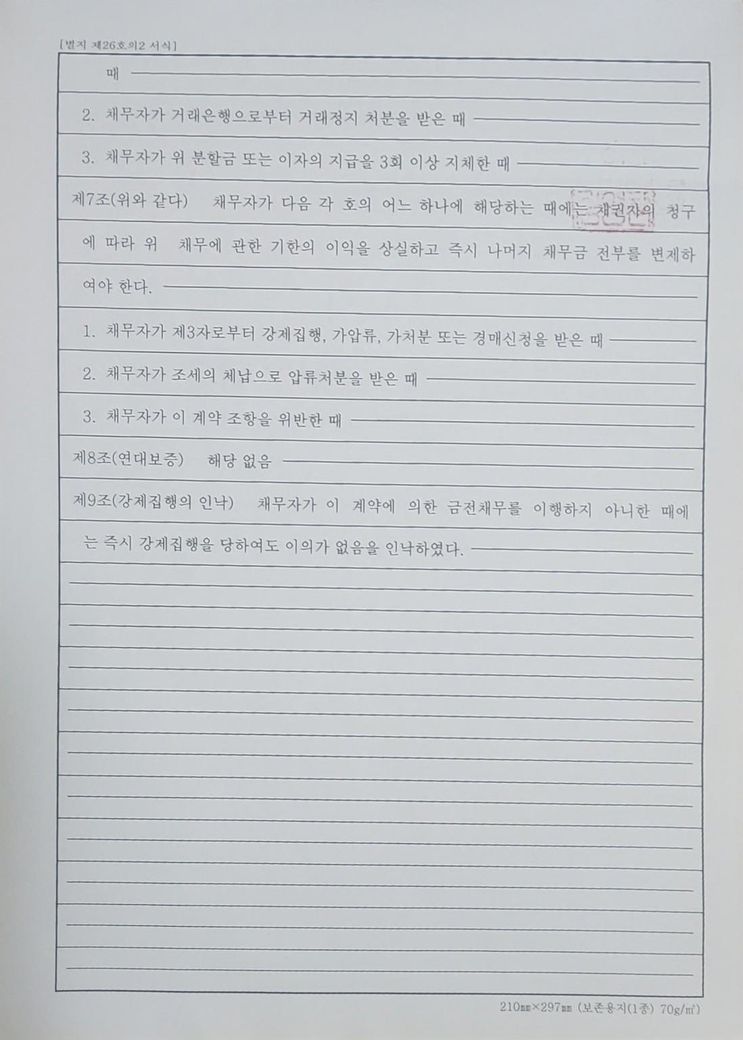 [별지 제26호의2 서식]
때
2. 채무자가 거래은행으로부터 거래정지 처분을 받은 때
3. 채무자가 위 분할금 또는 이자의 지급을 3회 이상 지체한 때
제7조(위와 같다) 채무자가 다음 각 호의 어느 하나에 해당하는 때에는 채권자의 청구
에 따라 위 채무에 관한 기한의 이익을 상실하고 즉시 나머지 채무금 전부를 변제하
여야 한다.
1. 채무자가 제3자로부터 강제집행, 가압류, 가처분 또는 경매신청을 받은 때
2. 채무자가 조세의 체납으로 압류처분을 받은 때
3. 채무자가 이 계약 조항을 위반한 때
제8조(연대보증) 해당 없음
제9조(강제집행의 인낙) 채무자가 이 계약에 의한 금전채무를 이행하지 아니한 때에
는 즉시 강제집행을 당하여도 이의가 없음을 인낙하였다.
210㎜×297㎜ (보존용지(1종) 70g/㎡)